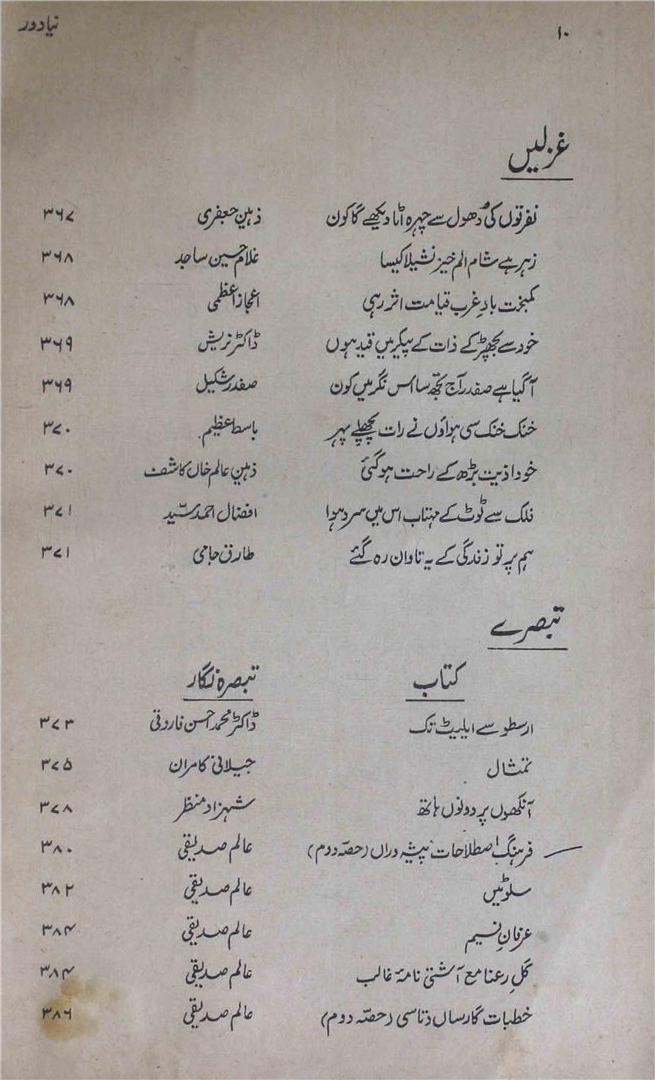 ۱۰ نیا دور
غزلیں
نفرتوں کی دھول سے چہرہ اٹا دیکھے گا کون ذہین جعفری ۳۶۷
زہر ہے شام الم خیز نشیلا کیسا غلام حسین ساجد ۳۶۸
کمبخت بادِ غرب قیامت اثر رہی اعجاز اعظمی ۳۶۸
خود سے بچھڑ کے ذات کے پیکر میں قید ہوں ڈاکٹر نریش ۳۶۹
آ گیا ہے صفدر آج تجھ سا اس نگر میں کون صفدر شکیل ۳۶۹
خنک خنک سی ہواؤں نے رات پچھلے پہر باسط عظیم ۳۷۰
خود اذیت بڑھ کے راحت ہو گئی ذہین عالم خاں کاشف ۳۷۰
فلک سے ٹوٹ کے مہتاب اس میں سرد ہوا افضال احمد سیّد ۳۷۱
ہم پر تو زندگی کے یہ تاوان رہ گئے طارق جامی ۳۷۱
تبصرے
کتاب تبصرہ نگار
ارسطو سے ایلیٹ تک ڈاکٹر محمد احسن فاروقی ۳۷۳
تمثال جیلانی کامران ۳۷۵
آنکھوں پر دونوں ہاتھ شہزاد منظر ۳۷۸
فرہنگِ اصطلاحات پیشہ وراں (حصّہ دوم) عالم صدیقی ۳۸۰
سلوٹیں عالم صدیقی ۳۸۲
عرفانِ نسیم عالم صدیقی ۳۸۴
گلِ رعنا مع آشتی نامۂ غالب عالم صدیقی ۳۸۴
خطبات گارساں دتاسی (حصّہ دوم) عالم صدیقی ۳۸۶